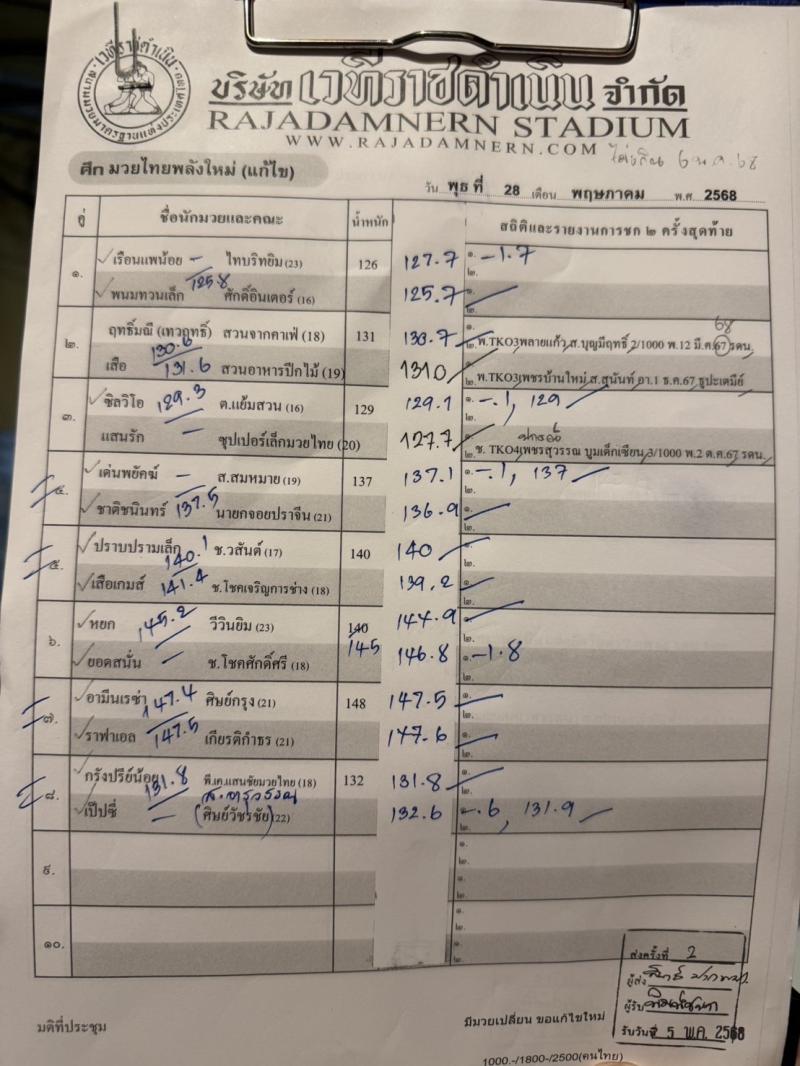 เวทีราชดำเนิน
สนามมวยมาตรฐานแห่งประเทศไทย
บริษัท เวทีราชดำเนิน จำกัด
RAJADAMNERN STADIUM
WWW.RAJADAMNERN.COM
ศึก มวยไทยพลังใหม่ (แก้ไข)
วัน พุธ ที่ 28 เดือน พฤษภาคม พ.ศ 2568
คู่ ชื่อนักมวยและคณะ น้ำหนัก สถิติและรายงานการชก ๒ ครั้งสุดท้าย
๑. เรือนแพน้อย – ไทบริทยิม (23) 126 127.7 ๑. -1.7
๒.
พนมทวนเล็ก 125.8 ศักดิ์อินเตอร์ (16) 125.7 ๑.
๒.
๒. ฤทธิ์มณี (เทวฤทธิ์) สวนจากคาเฟ่ (18) 131 130.7 ๑. 68
130.6 ๒. พ.TKO3พลายแก้ว,ส.บุญมีฤทธิ์ 2/1000 พ.12 มี.ค.67 รดน.
เสือ 131.6 สวนอาหารปีกไม้ (19) 131.0 ๑.
๒. พ.TKO3เพชรบ้านใหม่,ส.สุนันท์ อา.1 ธ.ค.67 ธูปะเตมีย์
๓. ซิลวิโอ 129.3 ต.แย้มสวน (16) 129 129.1 ๑. -.1, 129
๒.
แสนรัก – ซุปเปอร์เล็กมวยไทย (20) 127.7 ๑.
๒. ช. TKO4เพชรสุวรรณ บูมเด็กเซียน 3/1000 พ.2 ต.ค.67 รดน.
๔. เด่นพยัคฆ์ – ส.สมหมาย (19) 137 137.1 ๑. -.1, 137
๒.
ชาติชนินทร์ 137.5 นายกจอยปราจีน (21) 136.9 ๑.
๒.
๕. ปราบปรามเล็ก 140.1 ช.วสันต์ (17) 140 140 ๑.
๒.
เสือเกมส์ 141.4 ช.โชคเจริญการช่าง (18) 139.2 ๑.
๒.
๖. หยก 145.2 วีวินยิม (23) 140 144.9 ๑.
145 ๒.
ยอดสนั่น – ช.โชคศักดิ์ศรี (18) 146.8 ๑. -1.8
๒.
๗. อามีนเรซ่า 147.4 ศิษย์กรุง (21) 148 147.5 ๑.
๒.
ราฟาเอล 147.5 เกียรติกำธร (21) 147.6 ๑.
๒.
๘. กรังปรีย์น้อย 131.8 พี.เค.แสนชัยมวยไทย (18) 132 131.8 ๑.
๒.
เป๊ปซี่ – (ศิษย์วัชรชัย) (22) 132.6 ๑. -.6, 131.9
๒.
๙. ๑.
๒.
๑.
๒.
๑๐. ๑.
๒.
๑.
๒.
ส่งครั้งที่ 2
ผู้ส่ง
ผู้รับ
รับวันที่ 5 พ.ค. 2568
มติที่ประชุม
มีมวยเปลี่ยน ขอแก้ไขใหม่
1000.-/1800-/2500(คนไทย)